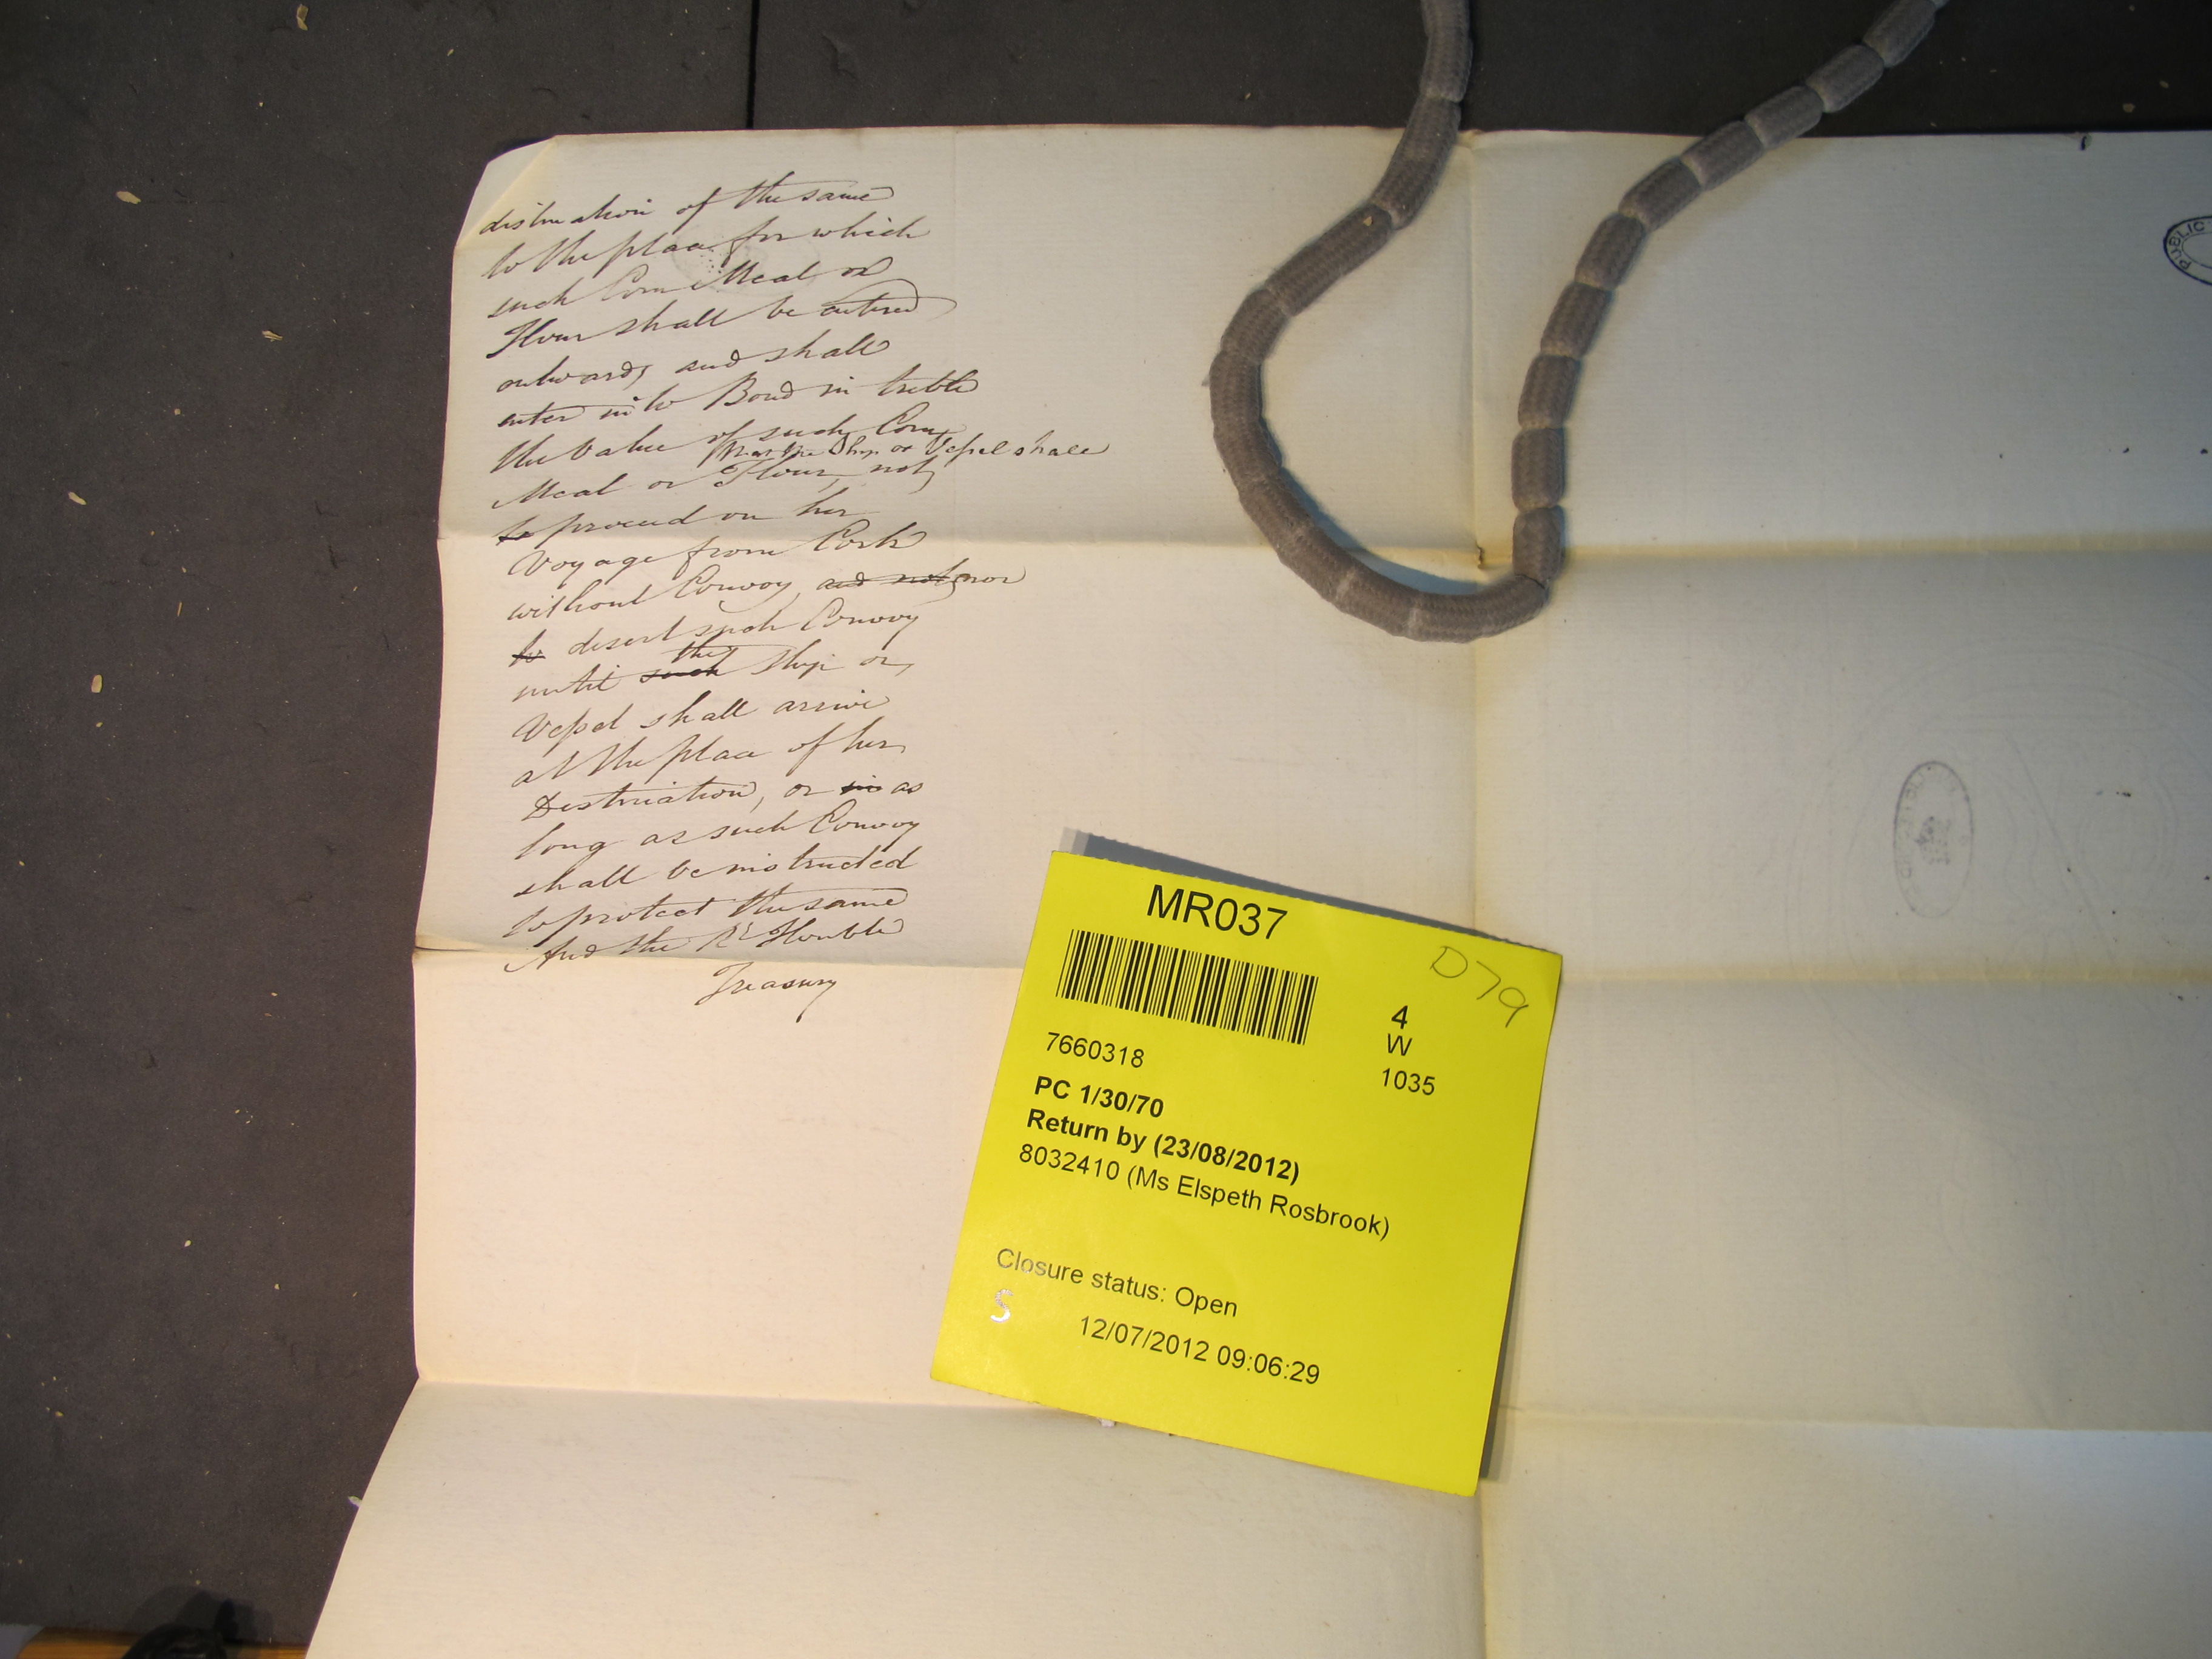 destination of the same
to the place for which
such Corn Meal or
Flour shall be entered
outwards, and shall
enter into Bond in treble
the Value of such Corn,
that the Ship or Vessel shall
Meal or Flour, not
to proceed on her
Voyage from Cork
without Convoy, and not nor
to desert such Convoy
the
until such Ship or
Vessel shall arrive
at the place of her
Destination, or in as
long as such Convoy
shall be instructed
to protect the same
And the Rt Honble
Treasury
PUBLIC
MR037
D79
4
W
1035
7660318
PC 1/30/70
Return by (23/08/2012)
8032410 (Ms Elspeth Rosbrook)
Closure status: Open
S
12/07/2012 09:06:29